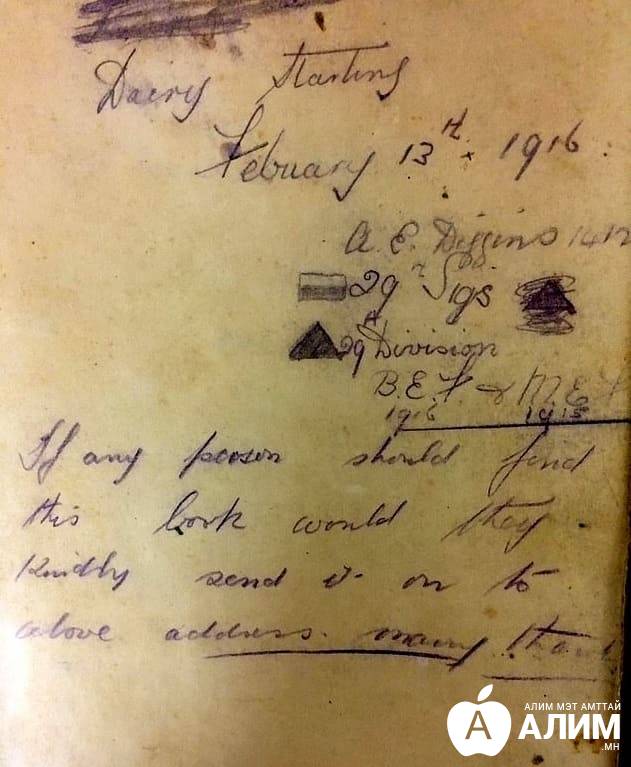 Dairy Starting
Febuary 13th 1916
A. E. Diggins 141
29 Sigs
29th Division
B.E.F. & M.E.F
1916 1915
If any person should find
this book would they
Kindly send it on to
above address. many thank
АЛИМ МЭТ АМТТАЙ
АЛИМ
.МН